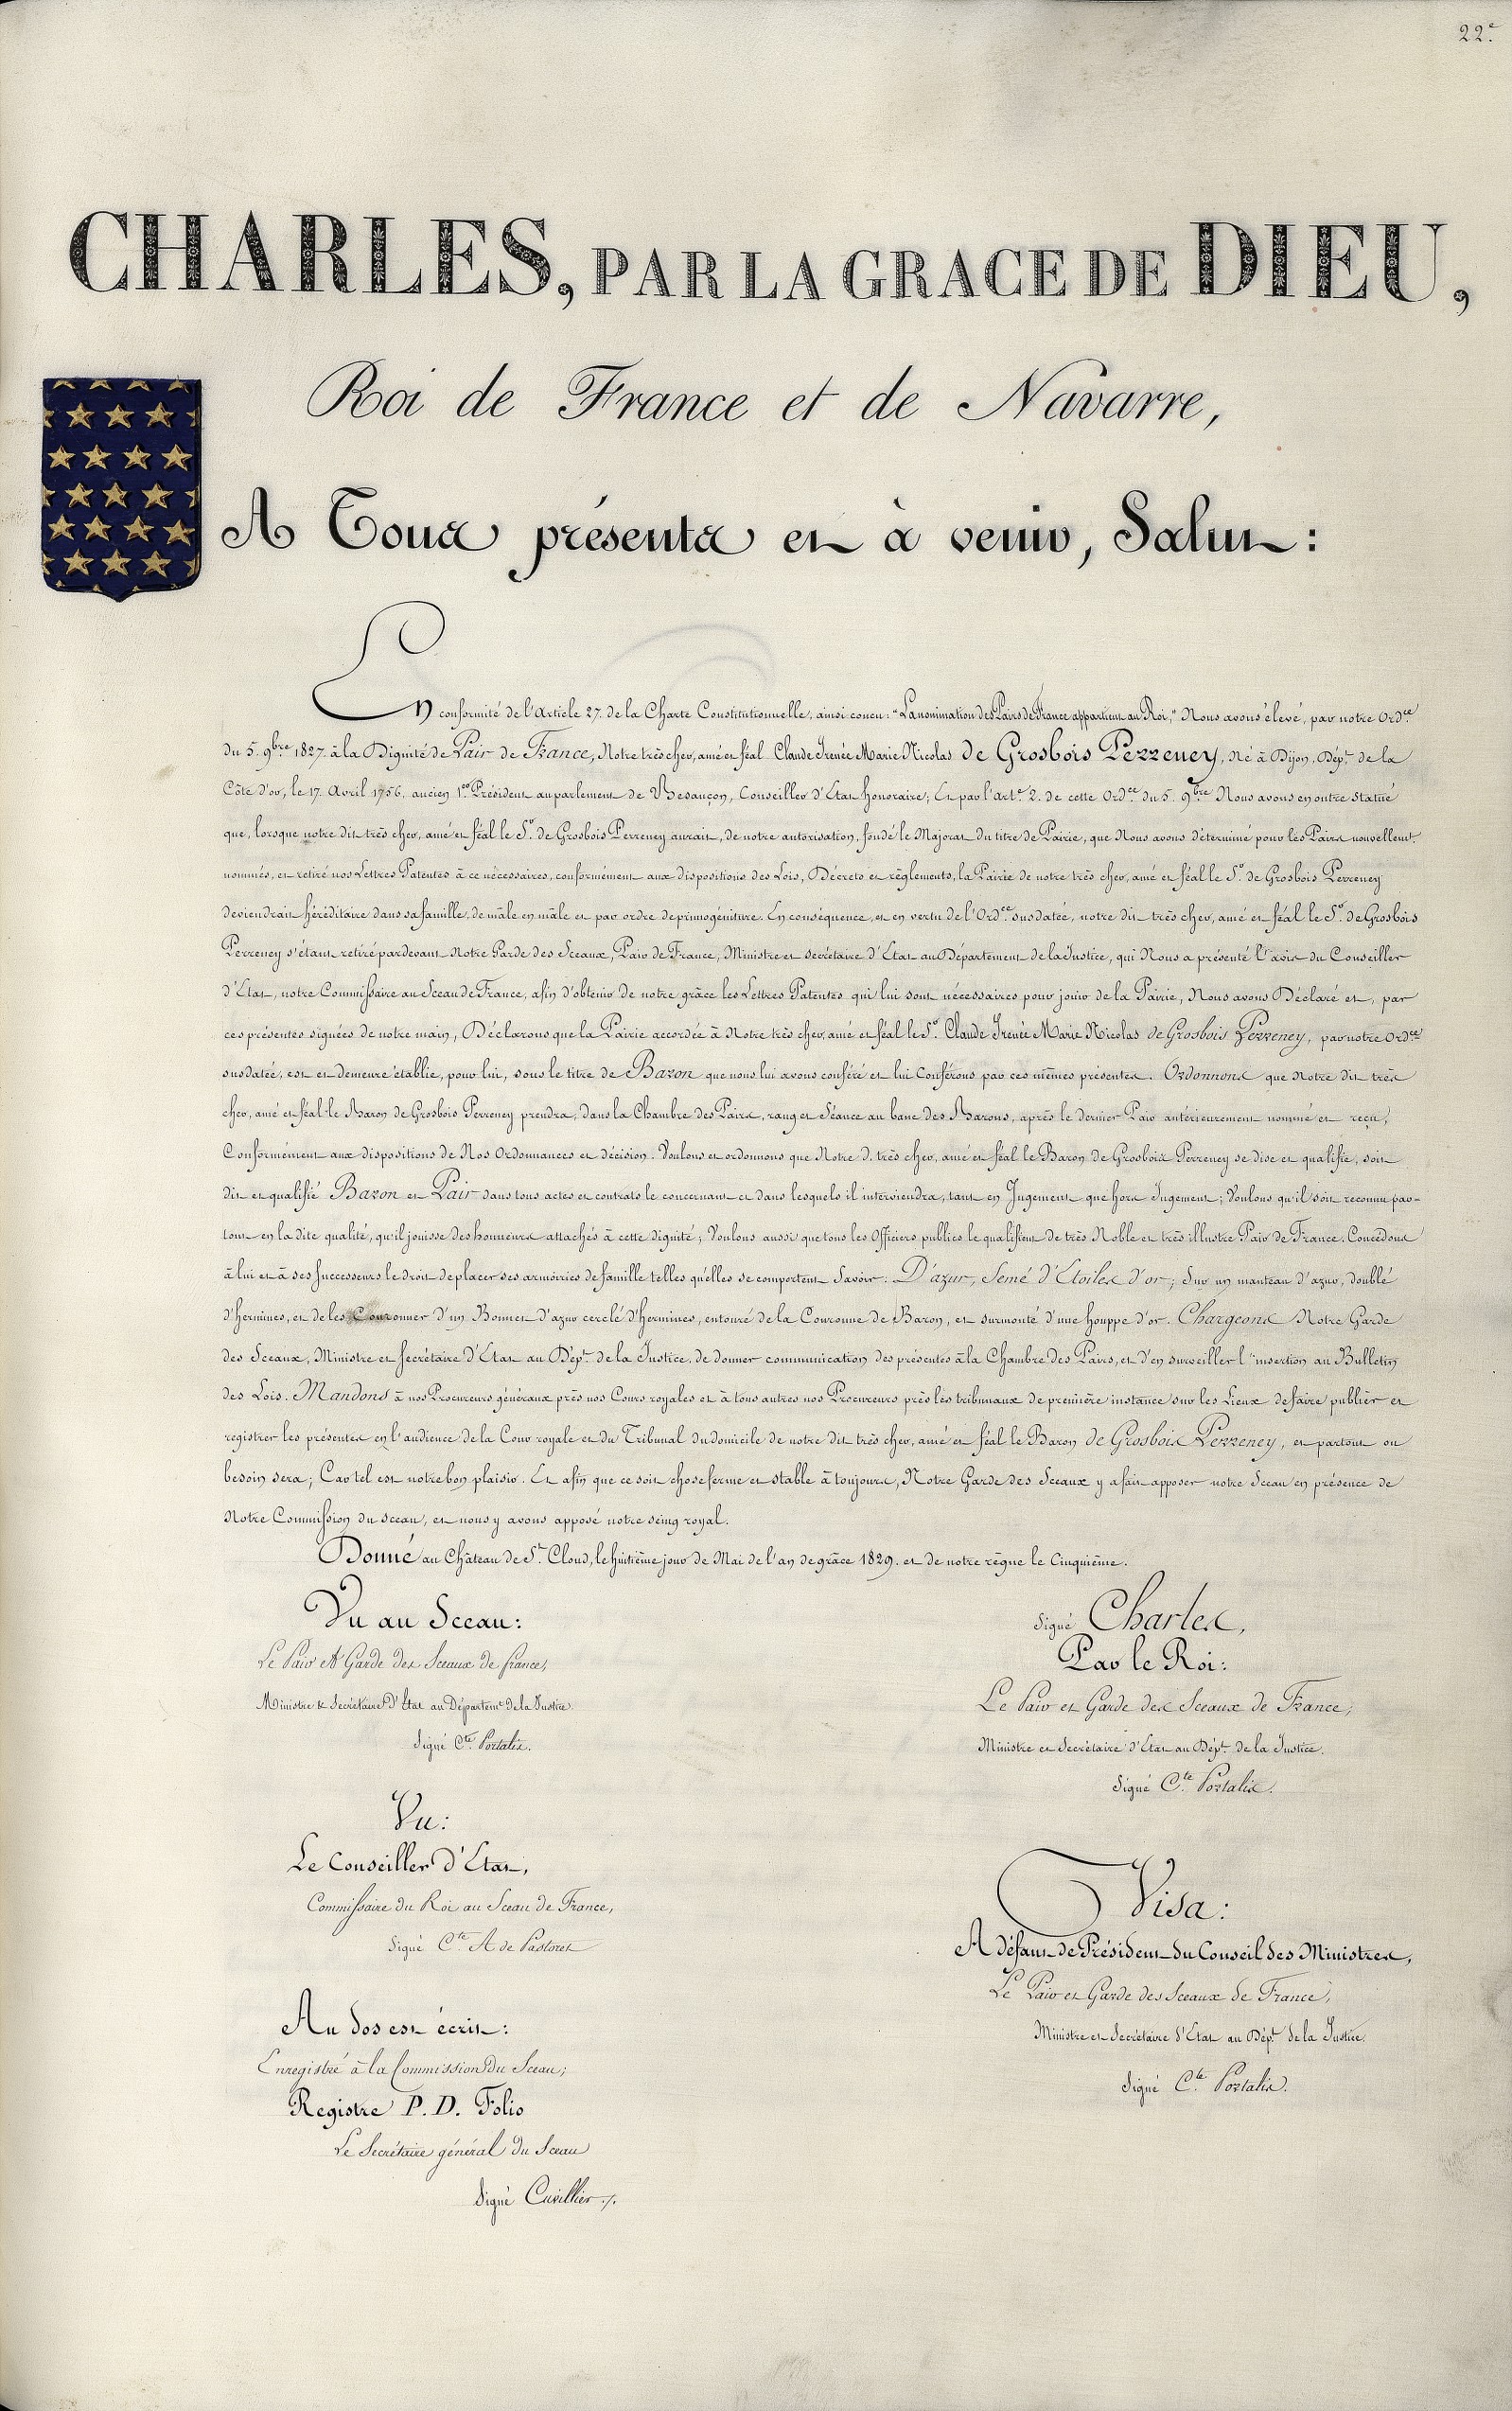 22e.
CHARLES, PAR LA GRACE DE DIEU,
Roi de France et de Navarre,
A Tous présents et à venir, Salut :
En conformité de l'Article 27. de la Charte Constitutionnelle, ainsi concu : "La nomination des Pairs de France appartient au Roi," Nous avons élevé, par notre Ord.ce
du 5. 9bre 1827. à la Dignité de Pair de France, Notre très cher, amé et féal Claude Irenée Marie Nicolas de Grosbois Perreney, né à Dijon, Dép.t de la
Côte d'or, le 17. Avril 1756. ancien 1.er Président au parlement de Besançon, Conseiller d'Etat honoraire ; Et par l'art.e 2. de cette Ord.ce du 5. 9bre Nous avons en outre Statué
que, lorsque notre dit très cher, amé et féal le S.r de Grosbois Perreney aurait, de notre autorisation, fondé le Majorat du titre de Pairie, que Nous avons déterminé pour les Pairs nouvellem.t
nommés, et retiré nos Lettres Patentes à ce nécessaires, conformément aux dispositions des Lois, Décrets et règlements, la Pairie de notre très cher, amé et féal le S.r de Grosbois Perreney
deviendrait héréditaire dans sa famille, de mâle en mâle et par ordre de primogéniture. En conséquence, et en vertu de l'Ord.ce susdatée, notre dit très cher, amé et féal le S.r de Grosbois
Perreney s'étant retiré pardevant Notre Garde des Sceaux, Pair de France, Ministre et secrétaire d'Etat au Département de la Justice, qui Nous a présenté l'avis du Conseiller
d'Etat, notre Commissaire au Sceau de France, afin d'obtenir de notre grâce les Lettres Patentes qui lui sont nécessaires pour jouir de la Pairie, Nous avons Déclaré et, par
ces présentes signées de notre main, Déclarons que la Pairie accordée à Notre très cher, amé et féal le S.r Claude Irenée Marie Nicolas de Grosbois Perreney, par notre Ord.ce
susdatée, est et demeure établie, pour lui, sous le titre de Baron que nous lui avons conféré et lui Conférons par ces mêmes présentes. Ordonnons que Notre dit très
cher, amé et féal le Baron de Grosbois Perreney prendra, dans la Chambre des Pairs, rang et Séance au banc des Barons, après le dernier Pair antérieurement nommé et reçu,
Conformément aux dispositions de Nos Ordonnances et décision. Voulons et ordonnons que Notre d. très cher, amé et féal le Baron de Grosbois Perreney se dise et qualifie, soit
dit et qualifié Baron et Pair dans tous actes et contrats le concernant et dans lesquels il interviendra, tant en Jugement que hors Jugement ; Voulons qu'il soit reconnu par-
tout en la dite qualité, qu'il jouisse des honneurs attachés à cette dignité ; Voulons aussi que tous les Officiers publics le qualifient de très Noble et très illustre Pair de France. Concédons
à lui et à ses Successeurs le droit de placer ses armoiries de famille telles qu'elles se comportent Savoir : D'azur, Semé d'Etoiles d'or ; Sur un manteau d'azur, doublé
d'hermines, et de les Couronner d'un Bonnet d'azur cerclé d'Hermines, entouré de la Couronne de Baron, et surmonté d'une houppe d'or. Chargeons Notre Garde
des Sceaux, Ministre et Secrétaire d'Etat au Dép.t de la Justice, de donner communication des présentes à la Chambre des Pairs, et d'en surveiller l'insertion au Bulletin
des Lois. Mandons à nos Procureurs généraux près nos Cours royales et à tous autres nos Procureurs près les tribunaux de première instance sur les Lieux de faire publier et
registrer les présentes en l'audience de la Cour royale et du Tribunal du domicile de notre dit très cher, amé et féal le Baron de Grosbois Perreney, et partout où
besoin sera ; Car tel est notre bon plaisir. Et afin que ce soit chose ferme et stable à toujours, Notre Garde des Sceaux y a fait apposer notre Sceau en présence de
Notre Commission du sceau, et nous y avons apposé notre seing royal.
Donné au Château de S.t Cloud, le huitième jour de Mai de l'an de grâce 1829. et de notre règne le Cinquième.
Vu au Sceau :
Le Pair et Garde des Sceaux de france,
Ministre & Secrétaire d'Etat au Départem.t de la Justice.
Signé C.te Portalis.
Signé Charles,
Par le Roi :
Le Pair et Garde des Sceaux de France,
Ministre et Secrétaire d'Etat au Dép.t de la Justice.
Signé C.te Portalis.
Vu :
Le Conseiller d'Etat,
Commissaire du Roi au Sceau de France,
Signé C.te A de Pastoret
Visa :
A défaut de Président du Conseil des Ministres,
Le Pair et Garde des Sceaux de France,
Ministre et Secrétaire d'Etat au Dép.t de la Justice.
Signé C.te Portalis.
Au dos est écrit :
Enregistré à la Commission du Sceau ;
Registre P. D. Folio
Le Secrétaire général du Sceau
Signé Cuvillier ./.